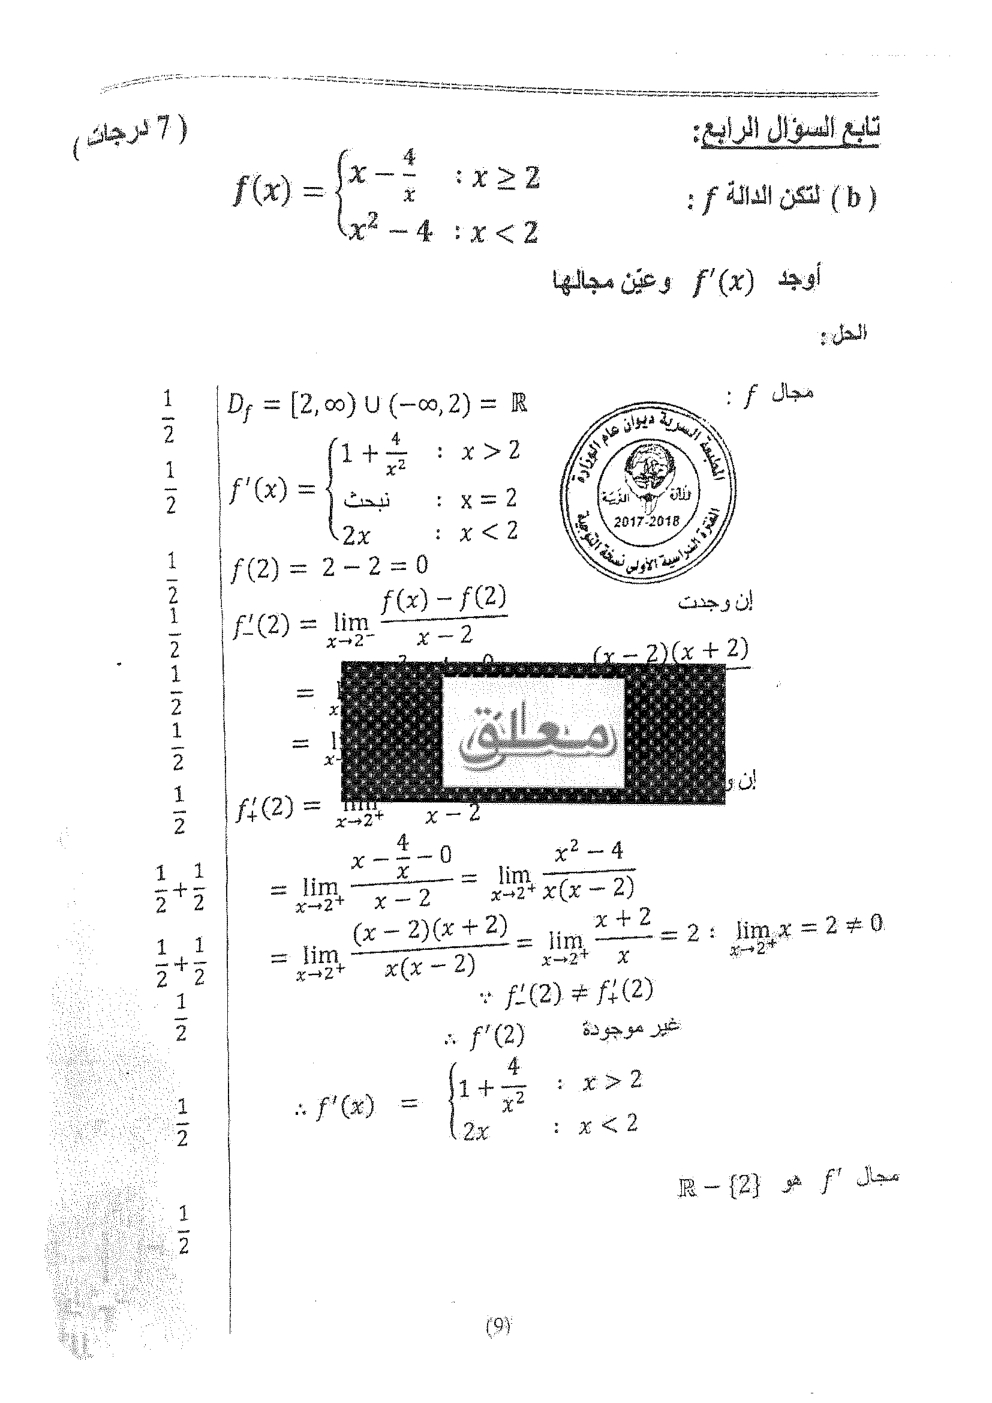 تابع السؤال الرابع: ( 7 درجات )
( b ) لتكن الدالة f : f(x) = { x − 4/x : x ≥ 2
x² − 4 : x < 2
أوجد f′(x) وعيّن مجالها
الحل :
مجال f : D_f = [2, ∞) ∪ (−∞, 2) = ℝ 1/2
f′(x) = { 1 + 4/x² : x > 2 1/2
نبحث : x = 2
2x : x < 2
f(2) = 2 − 2 = 0 1/2
المطبعة السرية ديوان عام الوزارة
وزارة التربية
2017-2018
الفترة الدراسية الأولى نسخة التوجية
f′₋(2) = lim x→2⁻ (f(x) − f(2))/(x − 2) إن وجدت 1/2
= (x − 2)(x + 2) 1/2
معلق
= 1/2
f′₊(2) = lim x→2⁺ x − 2 إن 1/2
= lim x→2⁺ (x − 4/x − 0)/(x − 2) = lim x→2⁺ (x² − 4)/(x(x − 2)) 1/2 + 1/2
= lim x→2⁺ ((x − 2)(x + 2))/(x(x − 2)) = lim x→2⁺ (x + 2)/x = 2 : lim x→2⁺ x = 2 ≠ 0 1/2 + 1/2
∵ f′₋(2) ≠ f′₊(2) 1/2
∴ f′(2) غير موجودة
∴ f′(x) = { 1 + 4/x² : x > 2 1/2
2x : x < 2
مجال f′ هو ℝ − {2} 1/2
(9)